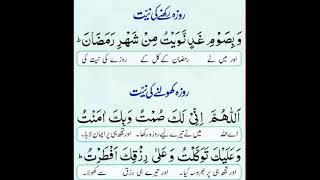 روزہ رکھنے کی نیت
وَبِصَوْمِ غَدٍ نَّوَيْتُ مِنْ شَهْرِ رَمَضَانَ
اور میں نے رمضان کے کل کے روزے کی نیت کی
روزہ کھولنے کی نیت
اَللّٰهُمَّ اِنِّیْ لَكَ صُمْتُ وَبِكَ اٰمَنْتُ
اے اللہ میں نے تیرے لیے روزہ رکھا۔ اور تجھ ہی پر ایمان لایا۔
وَعَلَيْكَ تَوَكَّلْتُ وَعَلٰى رِزْقِكَ اَفْطَرْتُ
اور تجھ ہی پر بھروسہ کیا۔ اور تیرے ہی رزق سے کھولا۔